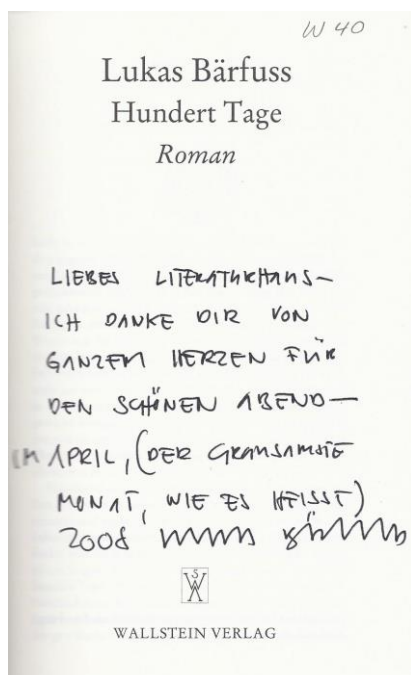 W 40
Lukas Bärfuss
Hundert Tage
Roman
LIEBES LITERATURHAUS—
ICH DANKE DIR VON
GANZEM HERZEN FÜR
DEN SCHÖNEN ABEND—
IM APRIL, (DER GRAUSAMSTE
MONAT, WIE ES HEISST)
2008
WALLSTEIN VERLAG